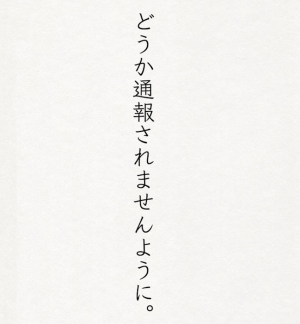 どうか通報されませんように。